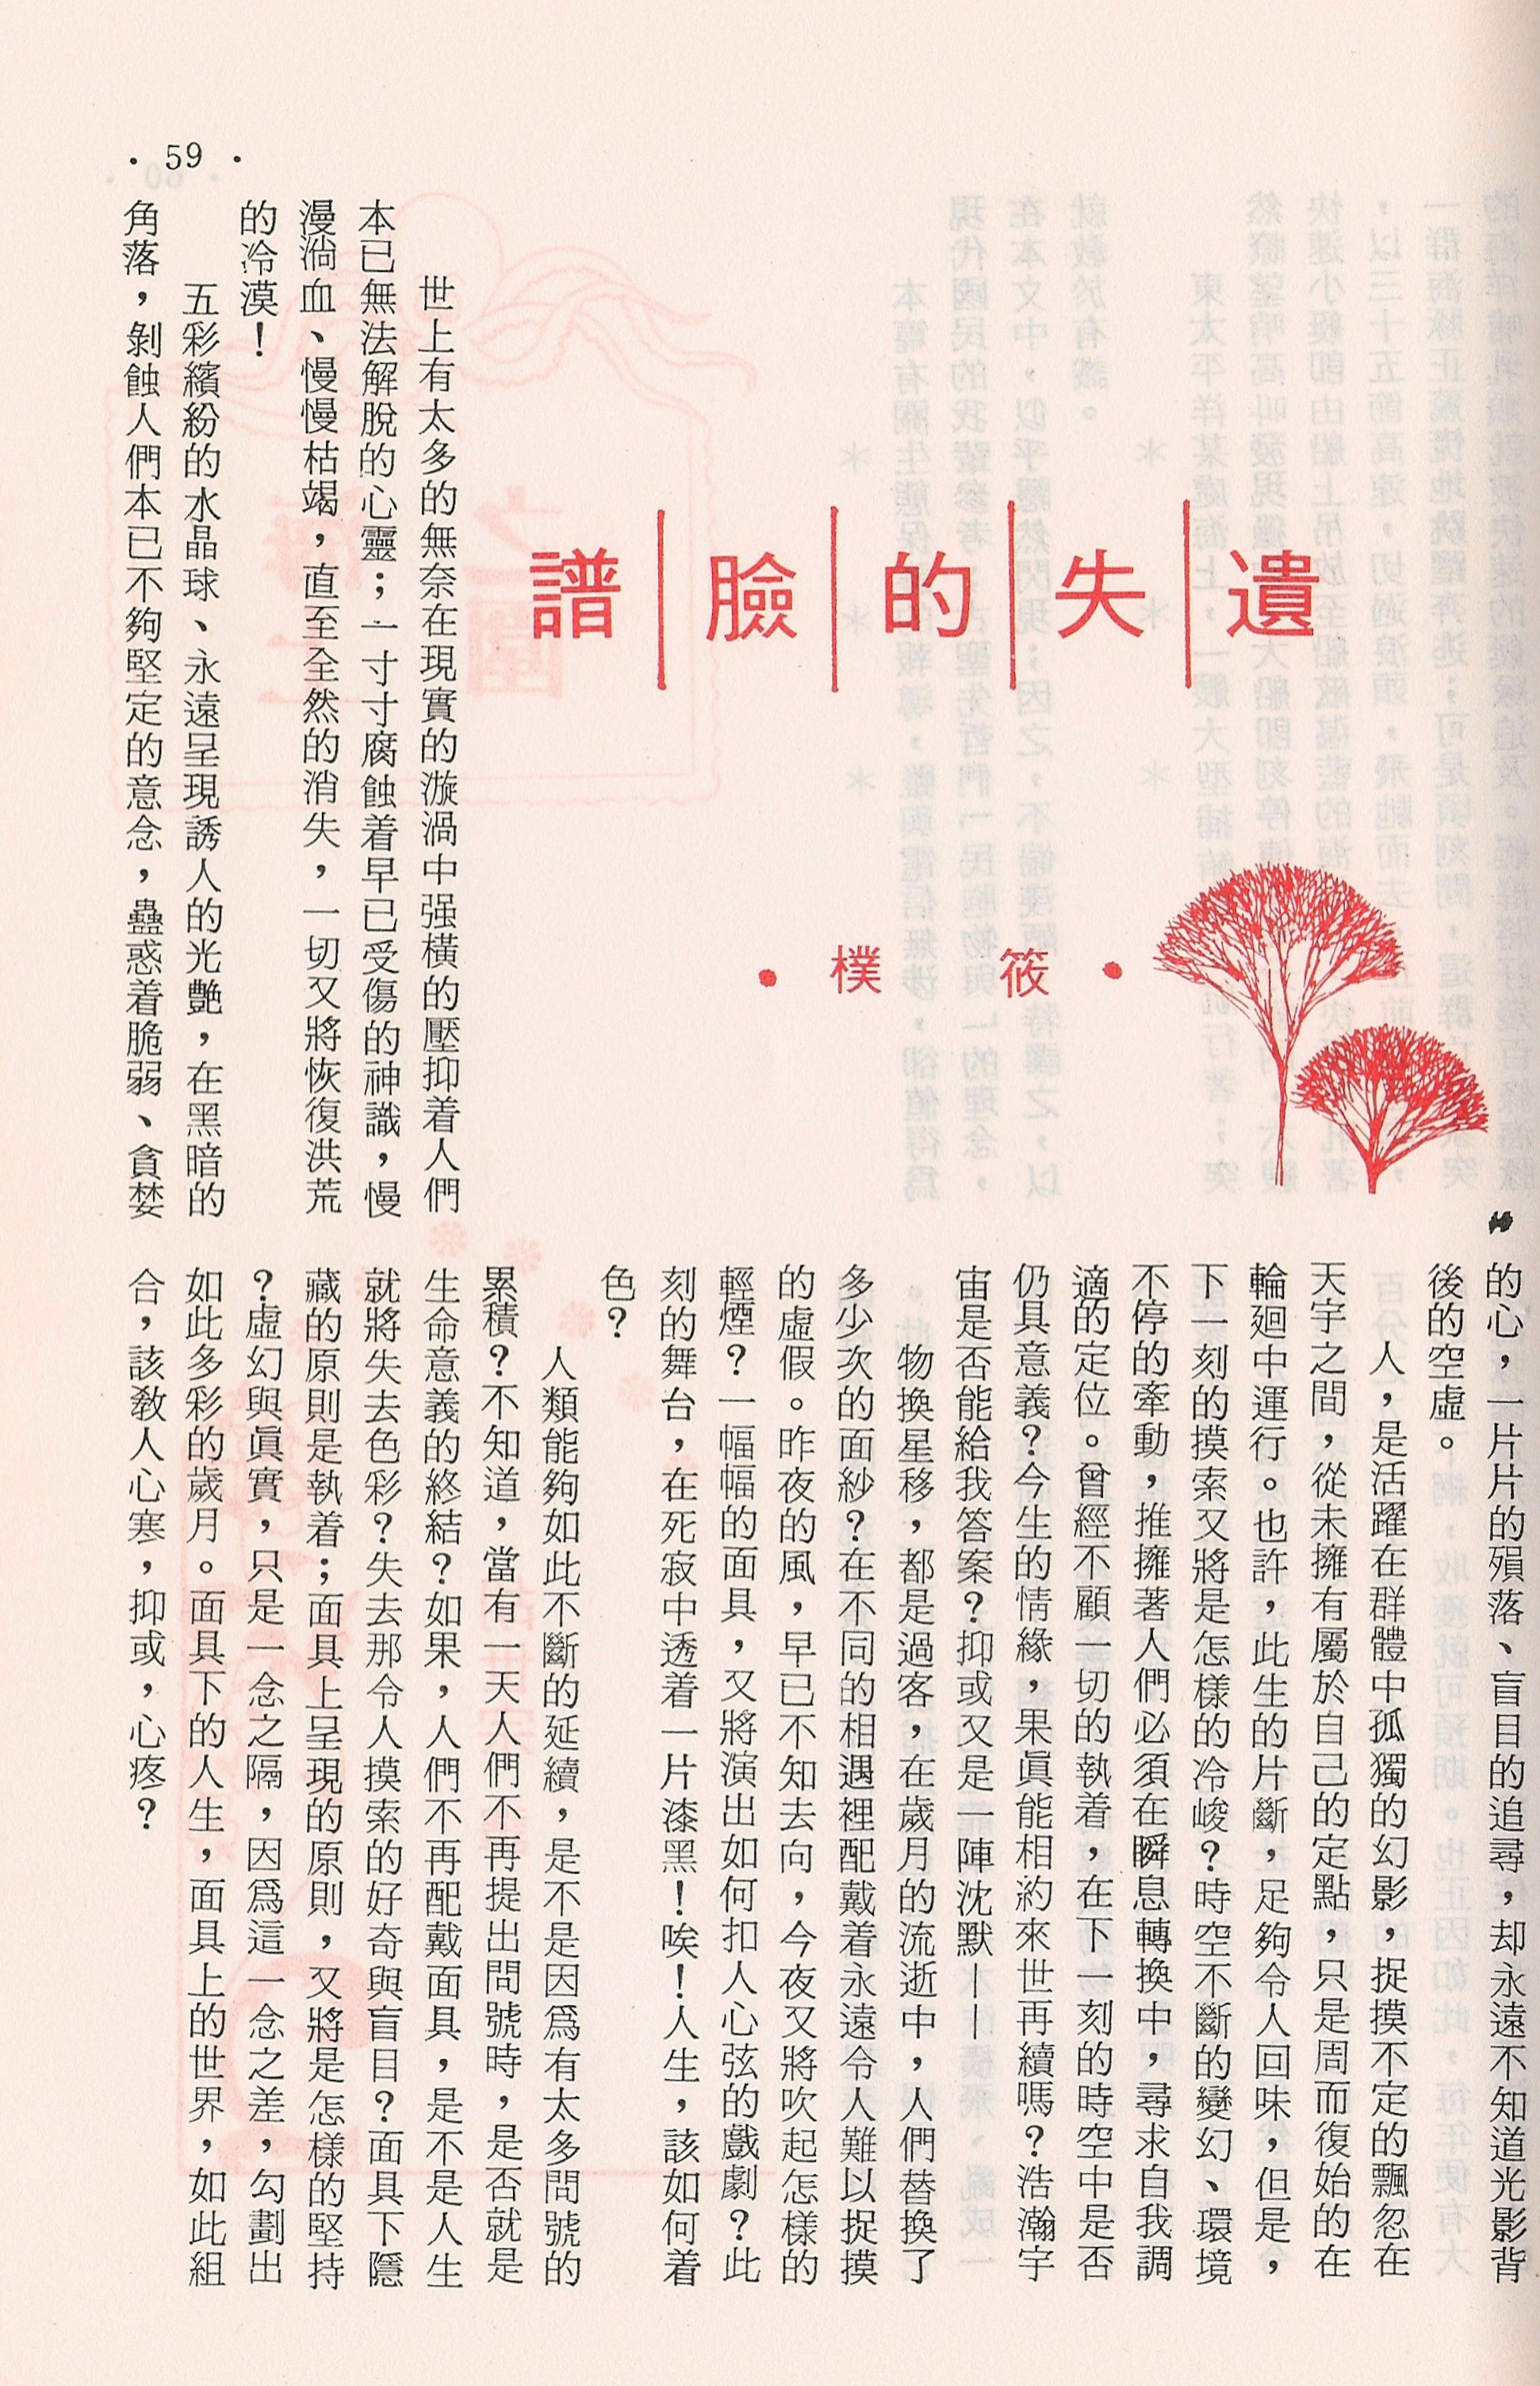 遺失的臉譜
•筱樸•
世上有太多的無奈在現實的漩渦中强橫的壓抑着人們
本已無法解脫的心靈；一寸寸腐蝕着早已受傷的神識，慢
漫淌血、慢慢枯竭，直至全然的消失，一切又將恢復洪荒
的冷漠！
五彩繽紛的水晶球、永遠呈現誘人的光艷，在黑暗的
角落，剝蝕人們本已不夠堅定的意念，蠱惑着脆弱、貪婪
的心，一片片的殞落、盲目的追尋，却永遠不知道光影背
後的空虛。
人，是活躍在群體中孤獨的幻影，捉摸不定的飄忽在
天宇之間，從未擁有屬於自己的定點，只是周而復始的在
輪廻中運行。也許，此生的片斷，足夠令人回味，但是，
下一刻的摸索又將是怎樣的冷峻？時空不斷的變幻、環境
不停的牽動，推擁著人們必須在瞬息轉換中，尋求自我調
適的定位。曾經不顧一切的執着，在下一刻的時空中是否
仍具意義？今生的情緣，果眞能相約來世再續嗎？浩瀚宇
宙是否能給我答案？抑或又是一陣沈默——
物換星移，都是過客，在歲月的流逝中，人們替換了
多少次的面紗？在不同的相遇裡配戴着永遠令人難以捉摸
的虛假。昨夜的風，早已不知去向，今夜又將吹起怎樣的
輕煙？一幅幅的面具，又將演出如何扣人心弦的戲劇？此
刻的舞台，在死寂中透着一片漆黑！唉！人生，該如何着
色？
人類能夠如此不斷的延續，是不是因爲有太多問號的
累積？不知道，當有一天人們不再提出問號時，是否就是
生命意義的終結？如果，人們不再配戴面具，是不是人生
就將失去色彩？失去那令人摸索的好奇與盲目？面具下隱
藏的原則是執着；面具上呈現的原則，又將是怎樣的堅持
？虛幻與眞實，只是一念之隔，因爲這一念之差，勾劃出
如此多彩的歲月。面具下的人生，面具上的世界，如此組
合，該敎人心寒，抑或，心疼？
• 59 •